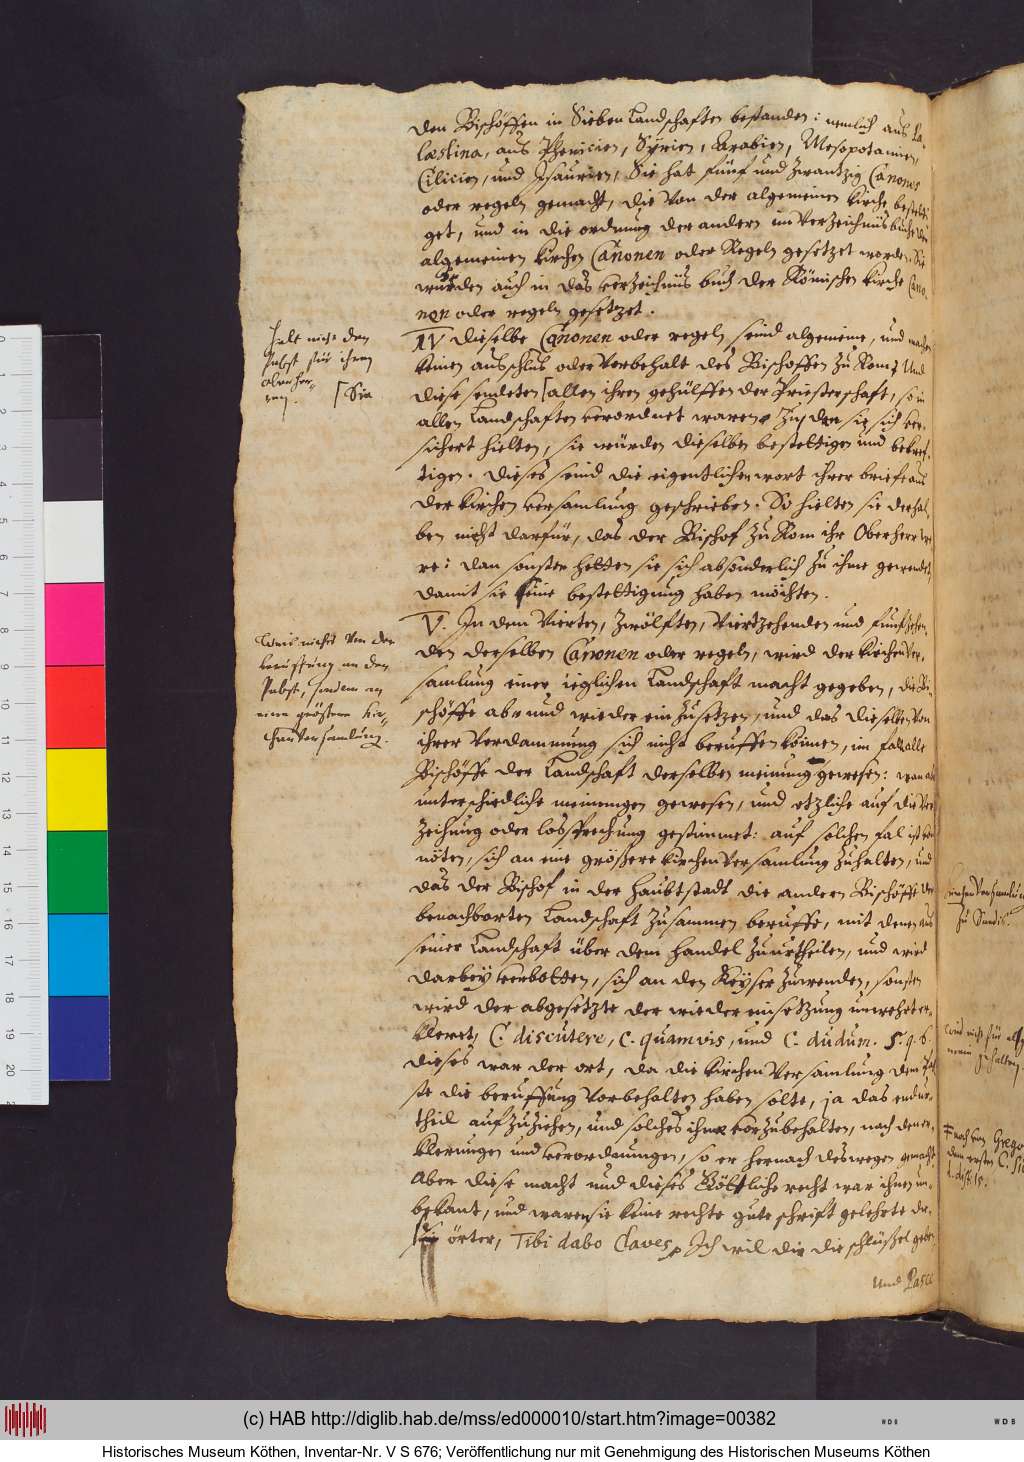 den Bischöffen in Sieben Landschafften bestanden: nemlich aus Pa-
læstina, aus Phenicien, Syrien, Arabien, Mesopotamien,
Cilicien, und Isaurien, Sie hat fünf und zwantzig Canones
oder regeln gemacht, die von der algemeinen Kirche bestetti-
get, und in die ordnung der andern im Verzeichnüsbuche der
algemeinen Kirchen Canonen oder Regeln gesetzet worden. Sie
wurden auch in das verzeichnüs buch der Römischen Kirche Cano-
nen oder regeln gesetzet.
IV dieselbe Canonen oder regeln seind algemeine, und machen
keinen ausschlus oder Vorbehalt des Bischoffen zu Rom; Und
diese sendeten [allen ihren gehülffen der Priesterschafft, so in
allen Landschafften verordnet waren zu, den sie sich ver-
sichert hielten, sie würden dieselben bestettigen und bekref-
tigen. Dieses seind die eigentlichen wort ihrer briefe aus
der Kirchen versamlung geschrieben. So hielten sie derhal-
ben nicht darfür, das der Bischof zu Rom ihr Oberherr we-
re: dan sonsten hetten sie sich absonderlich zu ihme gewendet,
damit sie seine bestettigung haben möchten.
V. In dem Vierten, zwölften, Viertzehenden und funfzehen-
den derselben Canonen oder regeln, wird der Kirchen Ver-
samlung einer ieglichen Landschafft macht gegeben, die Bi-
schöffe ab und wieder ein zusetzen, und das dieselben von
ihrer Verdammung sich nicht beruffen können, im fal alle
Bischöffe der Landschafft derselben meinung gewesen: wan aber
unterschiedliche meinungen gewesen, und etzliche auf die Ver-
zeihung oder lossprechung gestimmet: auf solchen fal ist von
nöten, sich an eine größere Kirchen Versamlung zuhalten, und
das der Bischof in der Haubtstadt die andern Bischöffe der
benachbarten Landschafft zusammen beruffe, mit denen aus
seiner Landschafft über dem handel zuurtheilen, und wird
darbey verbotten, sich an den Keyser zuwenden, sonsten
wird der abgesetzte der wieder einsetzung unwehrt er-
kleret, C. discutere, C. quamvis, und C. dudum. 5. q. 6.
dieses war der ort, da die Kirchen Versamlung dem Pab-
ste die beruffung Vorbehalten haben solte, ja das endur-
theil aufzuziehen, und solches ihme vorzubehalten, nach denen er-
klerungen und verordnungen, so er hernach deswegen gemacht
Aber diese macht und dieses Göttliche recht war ihnen un-
bekant, und waren sie keine rechte gute schrift gelehrte der
örter, Tibi dabo Claves, Ich wil dir die schlüßel geben
und Pasce
Helt nicht den
Pabst für ihren
oberher-
ren.
[Sie
Weis nichts von der
beruffung an den
Pabst, sondern an
eine größere Kir-
chen Versamlung.
Kirchen Versamlung
zu Sardis.
Wird nicht für all
mein gehalten.
nach dem Grego
dem ersten C. si